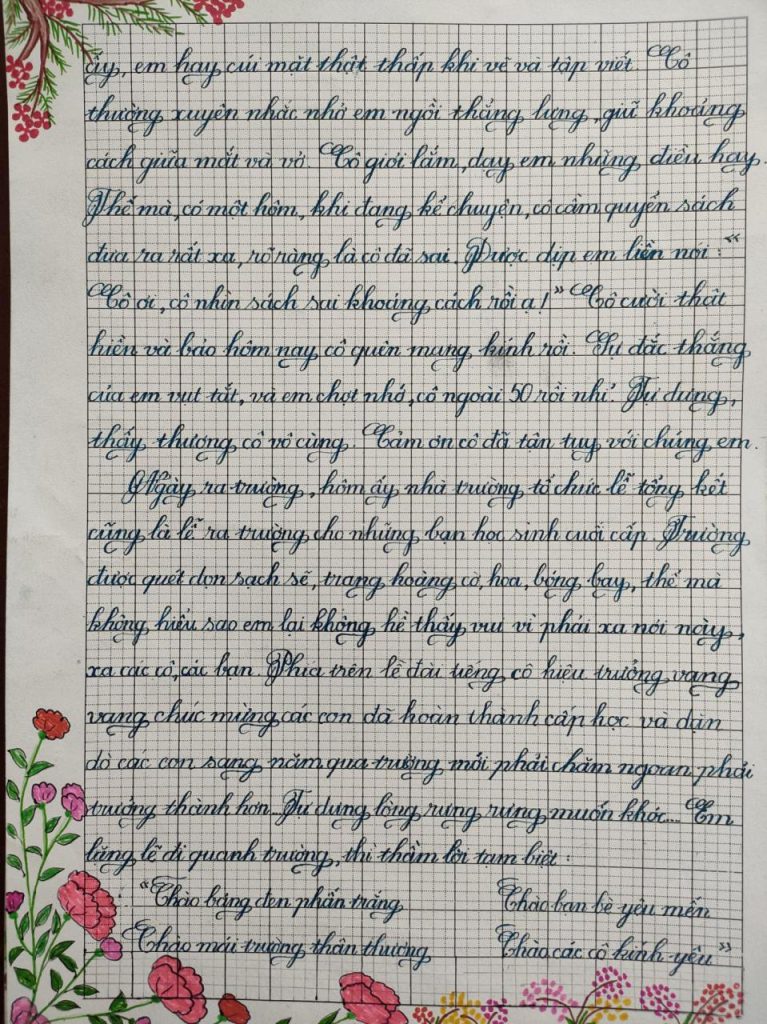 ấy, em hay cúi mặt thật thấp khi vẽ và tập viết. Cô
thường xuyên nhắc nhở em ngồi thẳng lưng, giữ khoảng
cách giữa mắt và vở. Cô giỏi lắm, dạy em những điều hay.
Thế mà, có một hôm, khi đang kể chuyện, cô cầm quyển sách
đưa ra rất xa, rõ ràng là cô đã sai. Được dịp em liền nói: "
"Cô ơi, cô nhìn sách sai khoảng cách rồi ạ!" Cô cười thật
hiền và bảo hôm nay cô quên mang kính rồi. Sự đắc thắng
của em vụt tắt, và em chợt nhớ, cô ngoài 50 rồi nhỉ. Tự dưng,
thấy thương cô vô cùng. Cảm ơn cô đã tận tụy với chúng em.
Ngày ra trường, hôm ấy nhà trường tổ chức lễ tổng kết
cũng là lễ ra trường cho những bạn học sinh cuối cấp. Trường
được quét dọn sạch sẽ, trang hoàng cờ, hoa, bóng bay, thế mà
không hiểu sao em lại không hề thấy vui vì phải xa nơi này,
xa các cô, các bạn. Phía trên lễ đài tiếng cô hiệu trưởng vang
vang chúc mừng các con đã hoàn thành cấp học và dặn
dò các con sang năm qua trường mới phải chăm ngoan phải
trưởng thành hơn. Tự dưng lòng rưng rưng muốn khóc... Em
lặng lẽ đi quanh trường, thì thầm lời tạm biệt:
"Chào bảng đen phấn trắng Chào bạn bè yêu mến
Chào mái trường thân thương Chào các cô kính yêu"